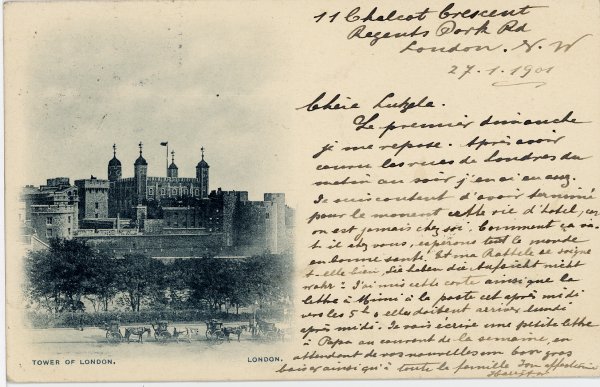 11 Chalcot Crescent
Regents Park Rd
London. N. W
27.1.1901
Chère Lutzela.
Le premier dimanche
je me repose. Après avoir
couru les rues de Londres du
matin au soir j'en ai assez.
Je suis content d'avoir terminé
pour le moment cette vie d'hôtel, car
on est jamais chez soi. Comment ça va-
t-il chez vous, espérons tout le monde
en bonne santé. Et ma se soigne
t-elle bien, Sie haben die Aufsicht nicht
wahr? J'ai mis cette carte ainsi que la
lettre à Mimi à la poste cet après midi
vers les 5 h elles doivent arriver lundi
après midi. Je vais écrire une petite lettre
à Papa au courant de la semaine, en
attendant de vos nouvelles un bon gros
baiser ainsi qu'à toute la famille
TOWER OF LONDON.
LONDON.